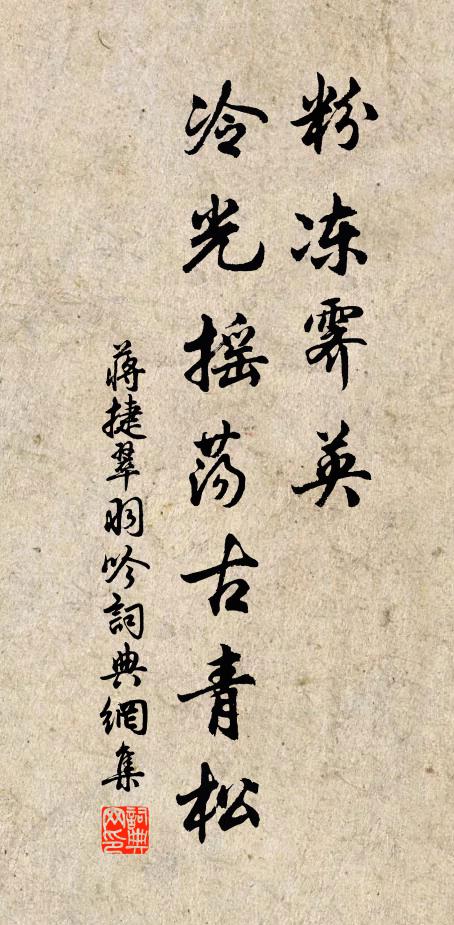 粉冻霁英
冷光摇荡古青松
蒋捷翠羽吟詞典網集
詞典网印